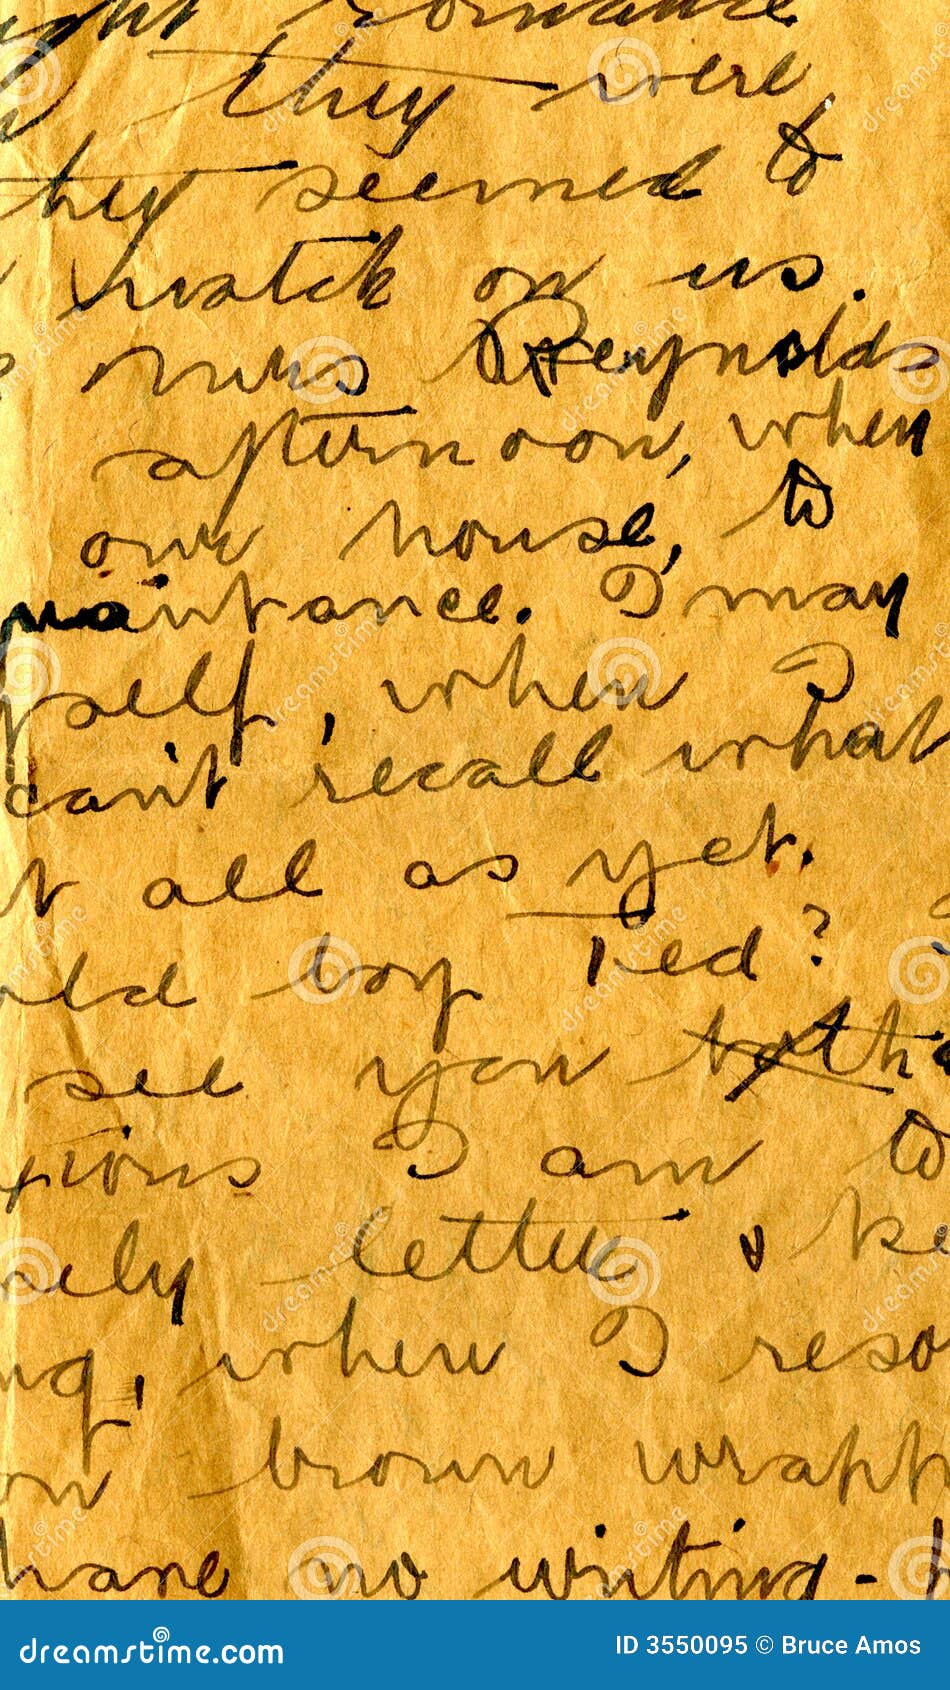 ight romance
they were,
they seemed to
watch on us.
Mrs Reynolds
afternoon, when
our house, to
uaintance. I may
yself, when I
can't recall what
t all as yet.
old boy Ted?
see you tha
tious I am to
nely letter & ke
ng, when I reso
on brown wrapp
have no writing - h
dreamstime.com
ID 3550095 © Bruce Amos